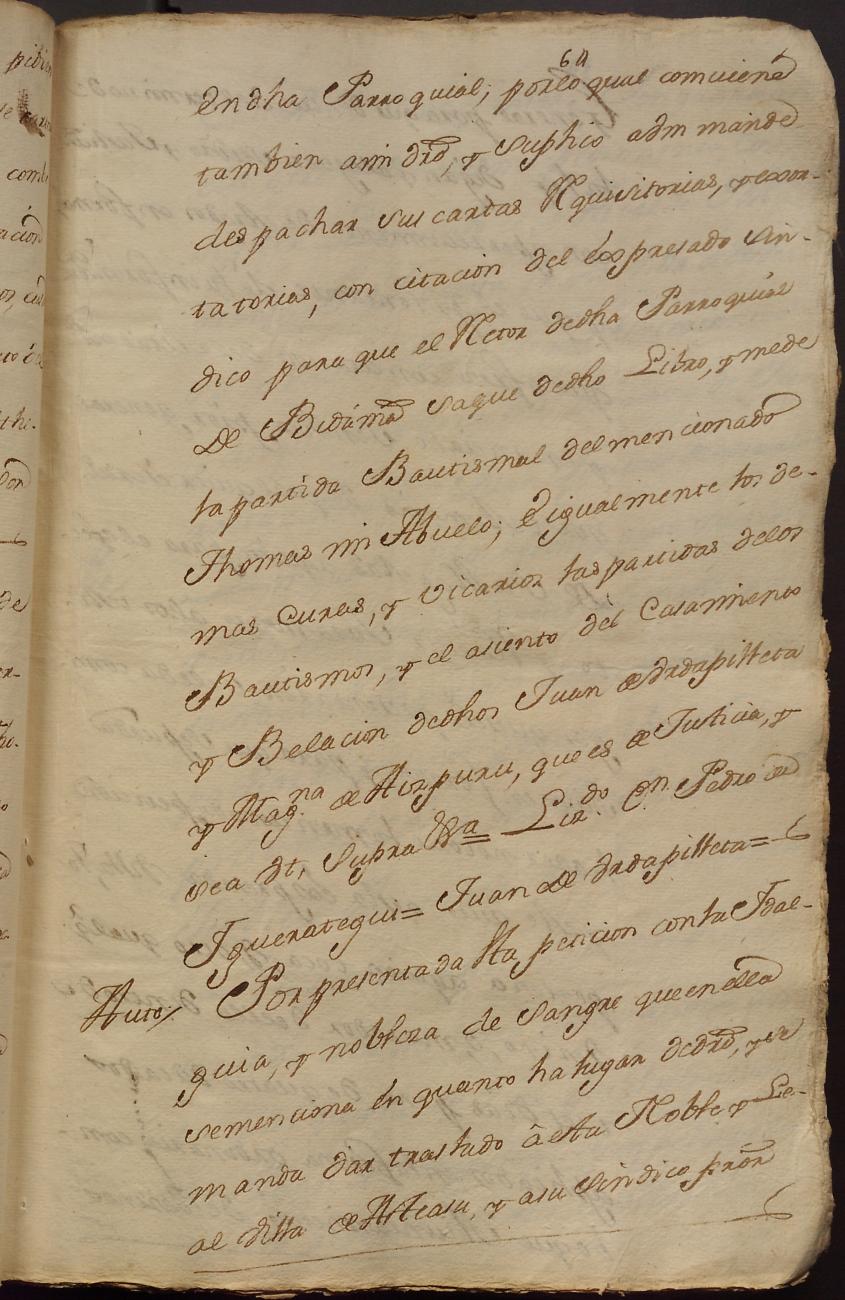 64
En dha Parroquial; por lo qual comviene
tambien a mi dro, y suplico a Vm mande
despachar sus cartas Requisitorias, y exor-
tatorias, con citacion del Expresado Sin-
dico para que el Retor de dha Parroquial
De Bidania saque de dho Libro, y me de
la partida Bautismal del mencionado
Thomas mi Abuelo; E igualmente los de-
mas Curas, y Vicarios las partidas de los
Bautismos, y el asiento del Casamiento
y Belacion de dhos Juan de Urdapilleta
y Mag.na de Aizpuru, que es de Justicia, y
sea Vt, Supra Va= Liz.do Dn. Pedro de
Yguerategui= Juan de Urdapilleta=
Auto/ Por presentada esta peticion con la Idal-
guia, y nobleza de Sangre que en ella
se menciona en quanto ha lugar de dro, y se
manda dar traslado â esta Noble y Le-
al Villa de Asteasu, y a su Sindico pror